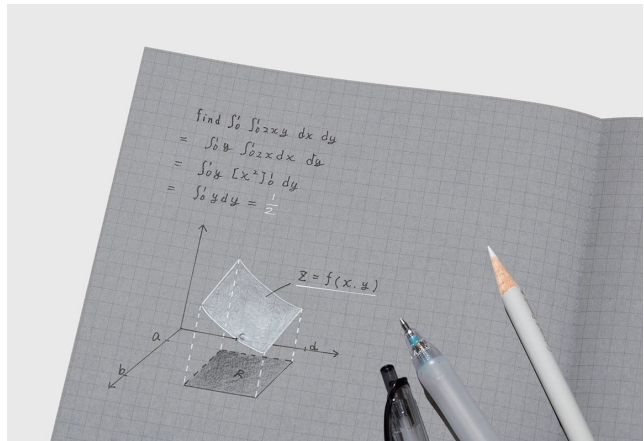 Find ∫₀¹ ∫₀¹ 2xy dx dy
= ∫₀¹ y ∫₀¹ 2x dx dy
= ∫₀¹ y [x²]₀¹ dy
= ∫₀¹ y dy = 1/2
z = f(x.y)
a
c
d
b
R